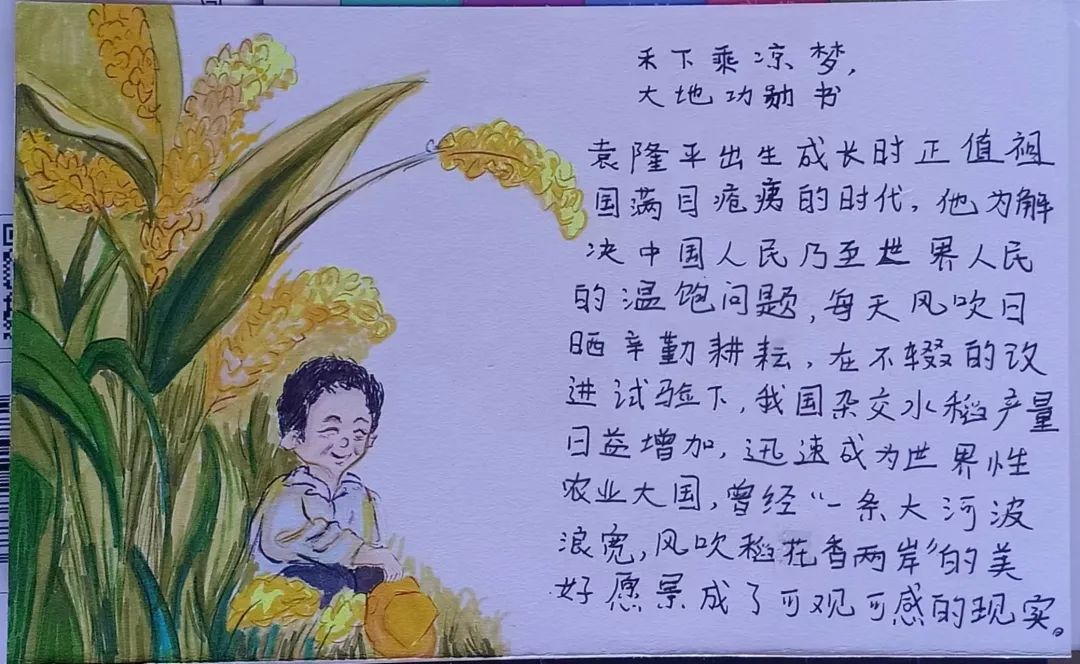 禾下乘凉梦，
大地功勋书
袁隆平出生成长时正值祖
国满目疮痍的时代，他为解
决中国人民乃至世界人民
的温饱问题，每天风吹日
晒辛勤耕耘，在不辍的改
进试验下，我国杂交水稻产量
日益增加，迅速成为世界性
农业大国，曾经“一条大河波
浪宽，风吹稻花香两岸”的美
好愿景成了可观可感的现实。